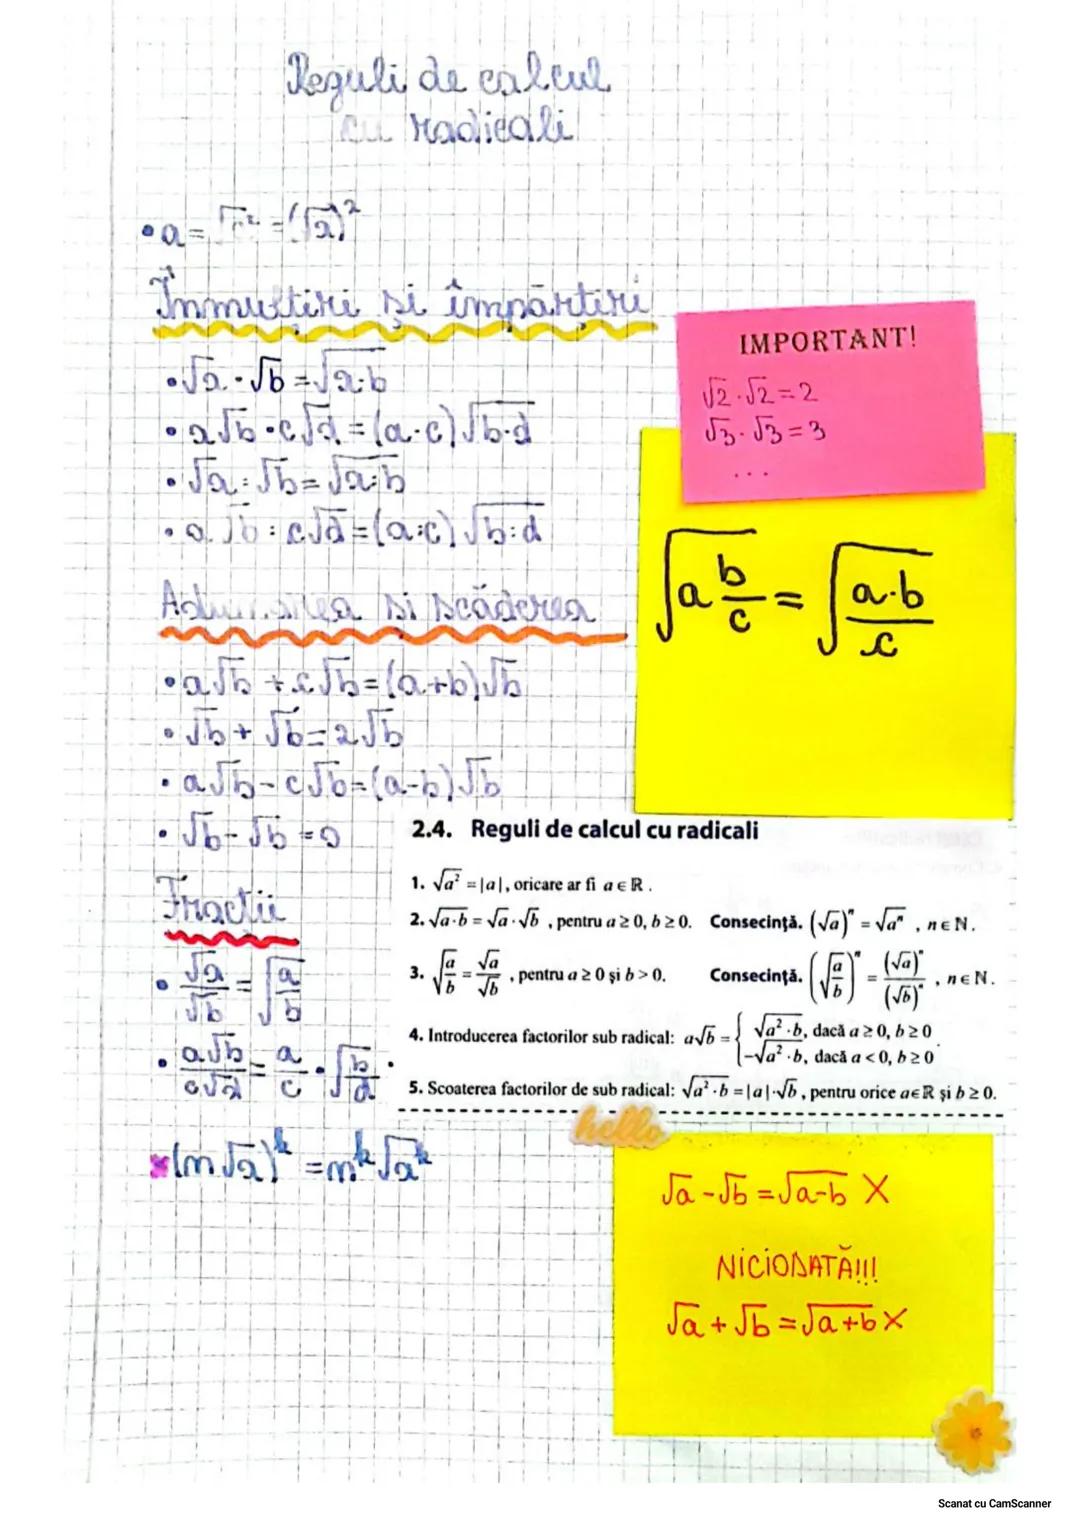 Reguli de calcul
cu radicali
• a = √a² = (√a)²
Înmulțiri și împărțiri
• √a · √b = √a·b
• a√b · c√d = (a·c)√b·d
• √a : √b = √a:b
• a√b : c√d = (a:c)√b:d
Adunarea și scăderea
• a√b + c√b = (a+b)√b
• √b + √b = 2√b
• a√b - c√b = (a-b)√b
• √b - √b = 0
Fracții
• √a/√b = √(a/b)
• a√b/c√d = a/c · √(b/d) .
* (m√a)^k = m^k √a^k
IMPORTANT!
√2 · √2 = 2
√3 · √3 = 3
...
√(a b/c) = √(a·b/c)
2.4. Reguli de calcul cu radicali
1. √a² = |a|, oricare ar fi a ∈ ℝ.
2. √a·b = √a · √b , pentru a ≥ 0, b ≥ 0. Consecință. (√a)ⁿ = √aⁿ , n ∈ ℕ.
3. √(a/b) = √a/√b , pentru a ≥ 0 și b > 0. Consecință. (√(a/b))ⁿ = (√a)ⁿ/(√b)ⁿ , n ∈ ℕ.
4. Introducerea factorilor sub radical: a√b = { √a²·b, dacă a ≥ 0, b ≥ 0
-√a²·b, dacă a < 0, b ≥ 0 .
5. Scoaterea factorilor de sub radical: √a²·b = |a|·√b , pentru orice a∈ℝ și b ≥ 0.
hello
√a - √b = √a-b X
NICIODATĂ!!!
√a + √b = √a+b X
Scanat cu CamScanner